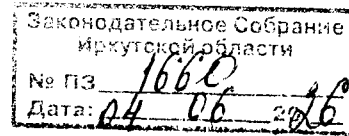 Законодательное Собрание
Иркутской области
№ ПЗ 1660
Дата: 04 06 2026